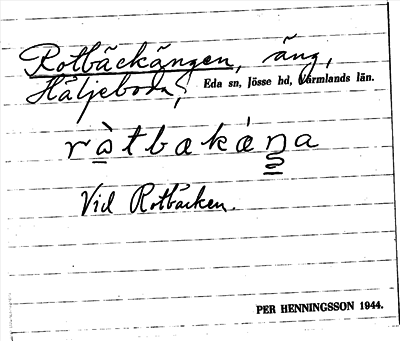 Rotbäckängen, äng,
Häljeboda, Eda sn, Jösse hd, Värmlands län.
ràtbækæ̀ŋa
Vid Rotbäcken.
PER HENNINGSSON 1944.